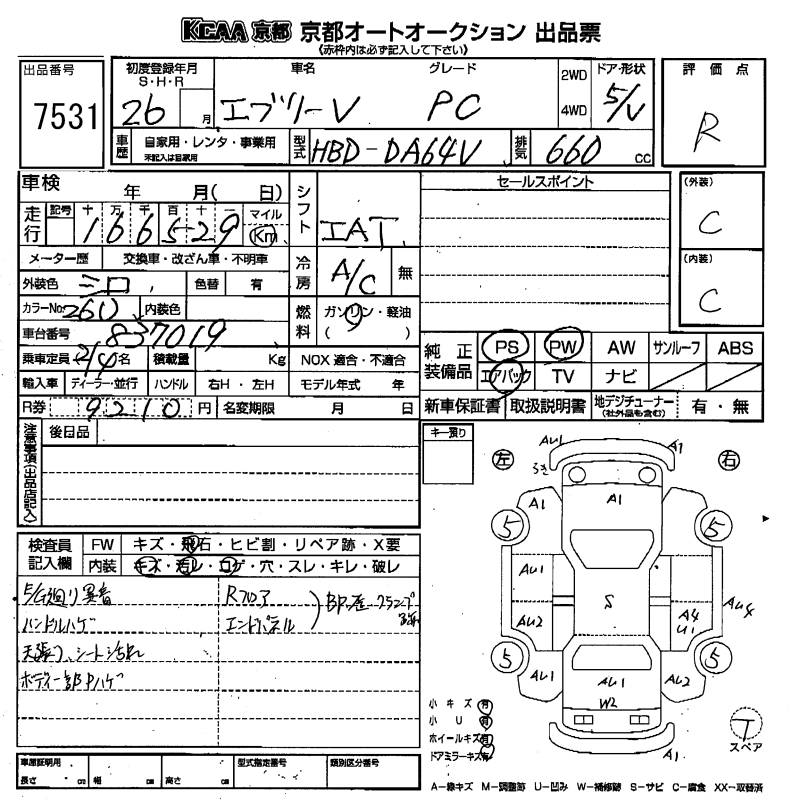 KCAA 京都 京都オートオークション 出品票
《赤枠内は必ず記入して下さい》
出品番号
7531
初度登録年月
S・H・R
26 月
車名
エブリーV
グレード
PC
2WD
4WD
ドア・形状
5/V
評価点
R
車歴
自家用・レンタ・事業用
未記入は自家用
型式
HBD-DA64V
排気
660 cc
車検 年 月( 日)
シフト
IAT
セールスポイント
(外装)
C
(内装)
C
走行
記号 十 万 千 百 十 一
166529
マイル
Km
メーター歴 交換車・改ざん車・不明車
冷房
A/C 無
外装色 シロ 色替 有
カラーNo. 26U 内装色
燃料
ガソリン・軽油
( )
車台番号 837019
乗車定員 2/4名 積載量 Kg
NOX 適合・不適合
輸入車 ディーラー・並行 ハンドル 右H・左H モデル年式 年
R券 9210 円 名変期限 月 日
純正装備品
PS PW AW サンルーフ ABS
エアバック TV ナビ
新車保証書 取扱説明書 地デジチューナー 有・無
(社外品も含む)
注意事項(出品店記入)
後日品
キー預り
左
右
検査員記入欄
FW キズ・飛石・ヒビ割・リペア跡・X要
内装 キズ・汚レ・コゲ・穴・スレ・キレ・破レ
ハンドルハゲ
天張り、シート汚れ
Rフロア
エンドパネル
AU1
A1
A1
A1
5
5
AU1
AU2
S
A4
U1
AU4
5
5
AU1
AU1
W2
AU2
A1
小キズ 有
小U 有
ホイールキズ 有
ドアミラーキズ 有
T
スペア
車庫証明用
長さ cm 幅 cm 高さ cm
型式指定番号
類別区分番号
A-線キズ M-調整跡 U-凹み W-補修跡 S-サビ C-腐食 XX-取替済